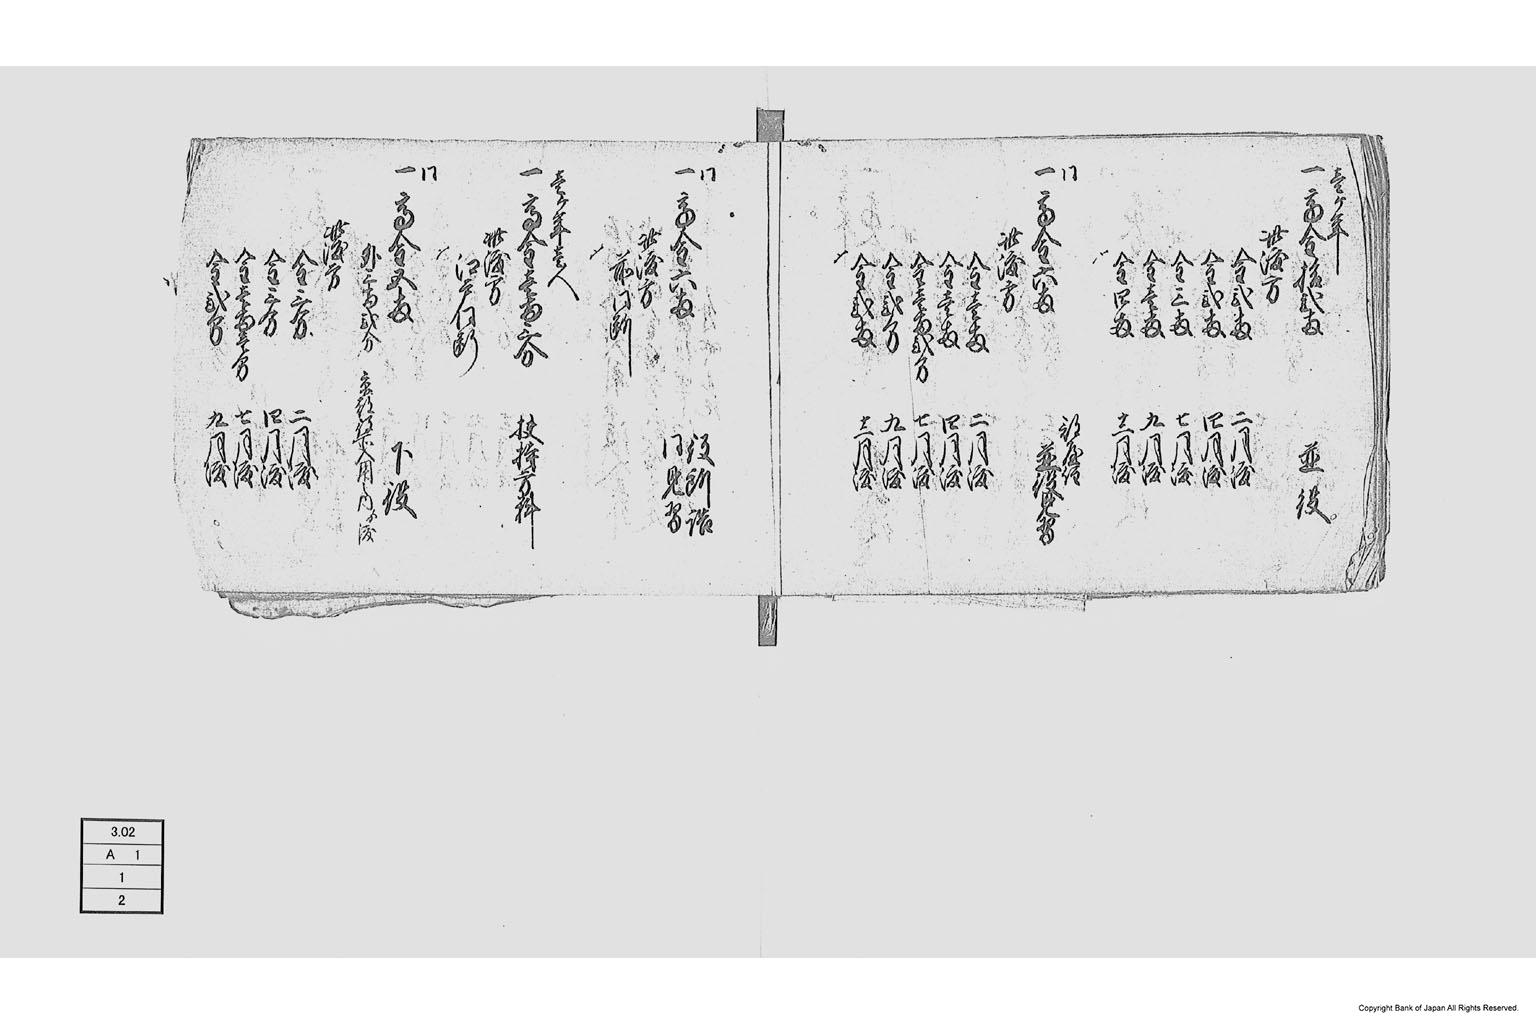 壱ヶ年
一 高金拾弐両 並役
此渡方
金弐両 二月渡
金弐両 四月渡
金三両 七月渡
金壱両 九月渡
金四両 十二月渡
同
一 高金六両
並役見習
此渡方
金壱両 二月渡
金壱両 四月渡
金壱両弐分 七月渡
金弐分 九月渡
金弐両 十二月渡
同
一 高金六両 役所詰
同見習
此渡方
前同断
壱ヶ年壱人
一 高金壱両三分 扶持方料
此渡方
同断
同
一 高金五両 下役
外三両弐分 入用之内より渡
此渡方
金三分 二月渡
金三分 四月渡
金壱両壱分 七月渡
金弐分 九月渡
3.02
A 1
1
2
Copyright Bank of Japan All Rights Reserved.